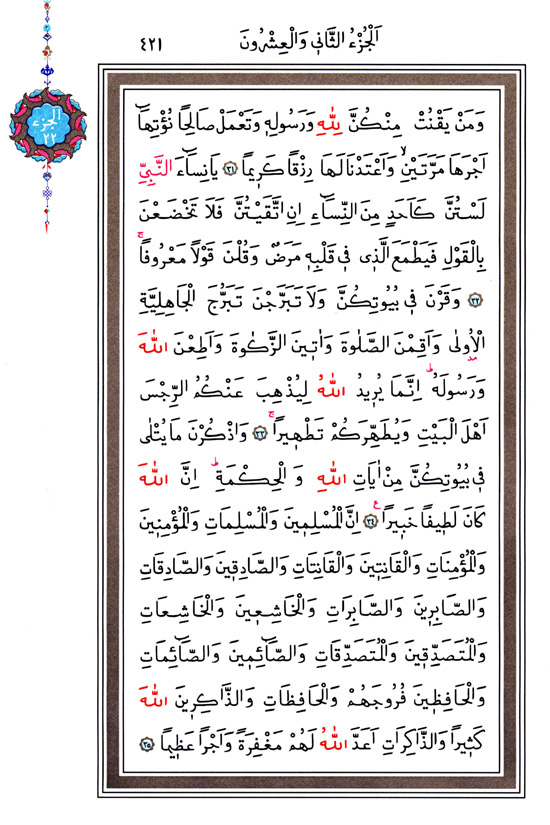 اَلْجُزْءُ الثَّانٖي وَالْعِشْرُونَ
٤٢١
الجزء
٢٢
وَمَنْ يَقْنُتْ مِنْكُنَّ لِلّٰهِ وَرَسُولِهٖ وَتَعْمَلْ صَالِحًا نُؤْتِهَٓا
اَجْرَهَا مَرَّتَيْنِۙ وَاَعْتَدْنَا لَهَا رِزْقًا كَرٖيمًا ﴿٣١﴾ يَا نِسَٓاءَ النَّبِيِّ
لَسْتُنَّ كَاَحَدٍ مِنَ النِّسَٓاءِ اِنِ اتَّقَيْتُنَّ فَلَا تَخْضَعْنَ
بِالْقَوْلِ فَيَطْمَعَ الَّذٖي فٖي قَلْبِهٖ مَرَضٌ وَقُلْنَ قَوْلًا مَعْرُوفًاۚ
﴿٣٢﴾ وَقَرْنَ فٖي بُيُوتِكُنَّ وَلَا تَبَرَّجْنَ تَبَرُّجَ الْجَاهِلِيَّةِ
الْاُولٰى وَاَقِمْنَ الصَّلٰوةَ وَاٰتٖينَ الزَّكٰوةَ وَاَطِعْنَ اللّٰهَ
وَرَسُولَهُؕ اِنَّمَا يُرٖيدُ اللّٰهُ لِيُذْهِبَ عَنْكُمُ الرِّجْسَ
اَهْلَ الْبَيْتِ وَيُطَهِّرَكُمْ تَطْهٖيرًاۚ ﴿٣٣﴾ وَاذْكُرْنَ مَا يُتْلٰى
فٖي بُيُوتِكُنَّ مِنْ اٰيَاتِ اللّٰهِ وَالْحِكْمَةِؕ اِنَّ اللّٰهَ
كَانَ لَطٖيفًا خَبٖيرًاࣖ ﴿٣٤﴾ اِنَّ الْمُسْلِمٖينَ وَالْمُسْلِمَاتِ وَالْمُؤْمِنٖينَ
وَالْمُؤْمِنَاتِ وَالْقَانِتٖينَ وَالْقَانِتَاتِ وَالصَّادِقٖينَ وَالصَّادِقَاتِ
وَالصَّابِرٖينَ وَالصَّابِرَاتِ وَالْخَاشِعٖينَ وَالْخَاشِعَاتِ
وَالْمُتَصَدِّقٖينَ وَالْمُتَصَدِّقَاتِ وَالصَّٓائِمٖينَ وَالصَّٓائِمَاتِ
وَالْحَافِظٖينَ فُرُوجَهُمْ وَالْحَافِظَاتِ وَالذَّاكِرٖينَ اللّٰهَ
كَثٖيرًا وَالذَّاكِرَاتِ اَعَدَّ اللّٰهُ لَهُمْ مَغْفِرَةً وَاَجْرًا عَظٖيمًا ﴿٣٥﴾